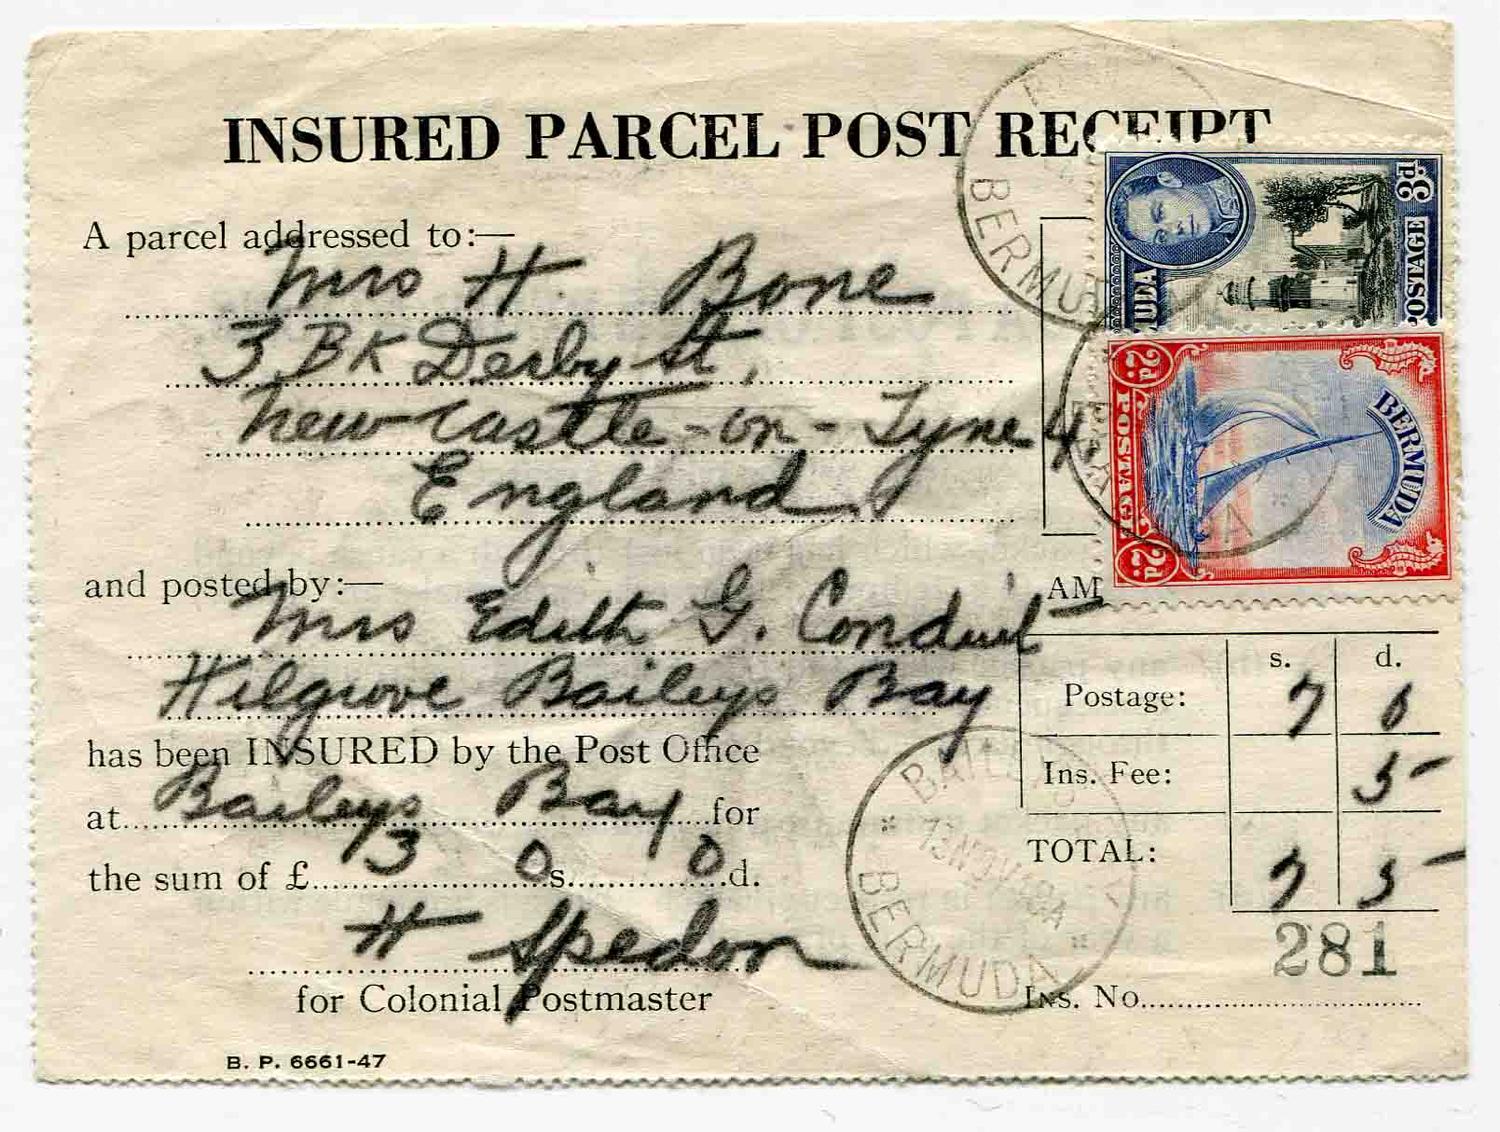 INSURED PARCEL POST RECEIPT
A parcel addressed to:—
Mrs H. Bone
3 BK Derby St,
Newcastle-on-Tyne 4.
England
and posted by:—
Mrs Edith G. Conduit
Hilgrove Baileys Bay
has been INSURED by the Post Office
at Baileys Bay for
the sum of £ 13 0 s. 0 d.
H Spedon
for Colonial Postmaster
B. P. 6661-47
3d
POSTAGE
2d.
POSTAGE
2d.
BERMUDA
BERMUDA
AM
s. d.
Postage: 7 0
Ins. Fee: 5-
TOTAL: 7 5-
281
Ins. No.
BAILEYS
13 NOV 48 A
BERMUDA